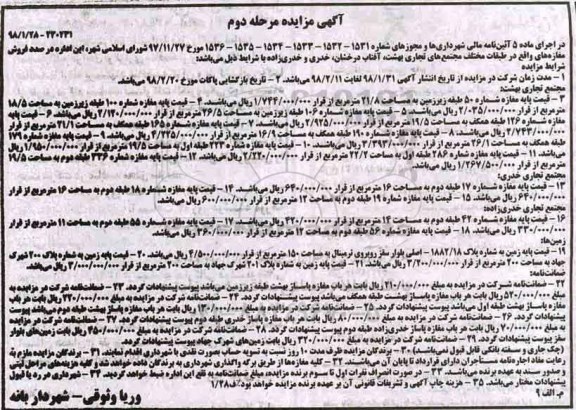 آگهی مزایده مرحله دوم
۹۸/۱/۲۸ - ۲۳۰۲۳۱
در اجرای ماده ۵ آئین‌نامه مالی شهرداری‌ها و مجوزهای شماره ۱۵۳۱ - ۱۵۳۲ - ۱۵۳۳ - ۱۵۳۴ - ۱۵۳۵ - ۱۵۳۶ مورخ ۹۷/۱۱/۲۷ شورای اسلامی شهر، این اداره در صدد فروش
مغازه‌های واقع در طبقات مختلف مجتمع‌های تجاری بهشت، آفتاب درخشان، خدری و خدری‌زاده با شرایط ذیل می‌باشد:
شرایط مزایده
۱ - مدت زمان شرکت در مزایده از تاریخ انتشار آگهی ۹۸/۱/۳۱ لغایت ۹۸/۲/۱۱ می‌باشد. ۲ - تاریخ بازگشایی پاکات مورخ ۹۸/۲/۲۰ می‌باشد.
مجتمع تجاری بهشت:
۳ - قیمت پایه مغازه شماره ۵۰ طبقه زیرزمین به مساحت ۲۱/۸ مترمربع از قرار ۱/۷۴۴/۰۰۰/۰۰۰ ریال می‌باشد. ۴ - قیمت پایه مغازه شماره ۱۰۰ طبقه زیرزمین به مساحت ۱۸/۵
مترمربع از قرار ۲/۰۳۵/۰۰۰/۰۰۰ ریال می‌باشد. ۵ - قیمت پایه مغازه شماره ۱۰۶ طبقه زیرزمین به مساحت ۲۶/۵ مترمربع از قرار ۲/۱۲۰/۰۰۰/۰۰۰ ریال می‌باشد. ۶ - قیمت پایه
مغازه شماره ۱۲۶ طبقه همکف به مساحت ۱۹/۵ مترمربع از قرار ۲/۹۲۵/۰۰۰/۰۰۰ ریال می‌باشد. ۷ - قیمت پایه مغازه شماره ۱۶۵ طبقه همکف به مساحت ۲۱/۱ مترمربع از قرار
۲/۷۴۳/۰۰۰/۰۰۰ ریال می‌باشد. ۸ - قیمت پایه مغازه شماره ۱۹۰ طبقه همکف به مساحت ۱۶/۹ مترمربع از قرار ۴/۲۲۵/۰۰۰/۰۰۰ ریال می‌باشد. ۹ - قیمت پایه مغازه شماره ۱۷۹
طبقه همکف به مساحت ۲۶/۱ مترمربع از قرار ۳/۳۹۳/۰۰۰/۰۰۰ ریال می‌باشد. ۱۰ - قیمت پایه مغازه شماره ۲۲۳ طبقه اول به مساحت ۱۹/۵ مترمربع از قرار ۱/۹۵۰/۰۰۰/۰۰۰ ریال
می‌باشد. ۱۱ - قیمت پایه مغازه شماره ۲۸۶ طبقه اول به مساحت ۲۲/۲ مترمربع از قرار ۲/۲۲۰/۰۰۰/۰۰۰ ریال می‌باشد. ۱۲ - قیمت پایه مغازه شماره ۳۳۶ طبقه دوم به مساحت ۱۹/۵
مترمربع از قرار ۱/۲۶۷/۵۰۰/۰۰۰ ریال می‌باشد.
مجتمع تجاری خدری:
۱۳ - قیمت پایه مغازه شماره ۱۷ طبقه دوم به مساحت ۱۶ مترمربع از قرار ۶۴۰/۰۰۰/۰۰۰ ریال می‌باشد. ۱۴ - قیمت پایه مغازه شماره ۱۸ طبقه دوم به مساحت ۱۶ مترمربع از قرار
۶۴۰/۰۰۰/۰۰۰ ریال می‌باشد. ۱۵ - قیمت پایه مغازه شماره ۱۹ طبقه دوم به مساحت ۱۲ مترمربع از قرار ۶۰۰/۰۰۰/۰۰۰ ریال می‌باشد.
مجتمع تجاری خدری‌زاده:
۱۶ - قیمت پایه مغازه شماره ۴۲ طبقه دوم به مساحت ۱۴ مترمربع از قرار ۴۲۰/۰۰۰/۰۰۰ ریال می‌باشد. ۱۷ - قیمت پایه مغازه شماره ۵۵ طبقه دوم به مساحت ۱۱ مترمربع از قرار
۳۳۰/۰۰۰/۰۰۰ ریال می‌باشد. ۱۸ - قیمت پایه مغازه شماره ۵۶ طبقه دوم به مساحت ۱۲ مترمربع از قرار ۳۶۰/۰۰۰/۰۰۰ ریال می‌باشد.
زمین‌ها:
۱۹ - قیمت پایه زمین به شماره پلاک ۱۸۸۲/۱۸ اصلی بلوار سقز روبروی ترمینال به مساحت ۱۵۰ مترمربع از قرار ۴/۵۰۰/۰۰۰/۰۰۰ ریال می‌باشد. ۲۰ - قیمت پایه زمین به شماره پلاک ۲۰۰ شهرک
جهاد به مساحت ۲۰۰ مترمربع از قرار ۳/۲۰۰/۰۰۰/۰۰۰ ریال می‌باشد. ۲۱ - قیمت پایه زمین به شماره پلاک ۲۰۱ شهرک جهاد به مساحت ۲۰۰ مترمربع از قرار ۳/۰۰۰/۰۰۰/۰۰۰ ریال می‌باشد.
ضمانت‌نامه:
۲۲ - ضمانت‌نامه شرکت در مزایده به مبلغ ۲۱۰/۰۰۰/۰۰۰ ریال بابت هر باب مغازه پاساژ بهشت طبقه زیرزمین می‌باشد پیوست پیشنهادات گردد. ۲۳ - ضمانت‌نامه شرکت در مزایده به
مبلغ ۵۲۰/۰۰۰/۰۰۰ ریال بابت هر باب مغازه پاساژ بهشت طبقه همکف می‌باشد پیوست پیشنهادات گردد. ۲۴ - ضمانت‌نامه شرکت در مزایده به مبلغ ۲۲۰/۰۰۰/۰۰۰ ریال بابت هر باب
مغازه پاساژ بهشت طبقه اول می‌باشد پیوست پیشنهادات گردد. ۲۵ - ضمانت‌نامه شرکت در مزایده به مبلغ ۱۳۰/۰۰۰/۰۰۰ ریال بابت هر باب مغازه پاساژ بهشت طبقه دوم می‌باشد پیوست
پیشنهادات گردد. ۲۶ - ضمانت‌نامه شرکت در مزایده به مبلغ ۸۰/۰۰۰/۰۰۰ ریال بابت هر باب مغازه پاساژ خدری طبقه دوم پیوست پیشنهادات گردد. ۲۷ - ضمانت‌نامه شرکت در مزایده به
مبلغ ۷۰/۰۰۰/۰۰۰ ریال بابت هر باب مغازه پاساژ خدری‌زاده طبقه دوم پیوست پیشنهادات گردد. ۲۸ - ضمانت‌نامه شرکت در مزایده به مبلغ ۴۵۰/۰۰۰/۰۰۰ ریال بابت زمین‌های بلوار
سقز پیوست پیشنهادات گردد. ۲۹ - ضمانت‌نامه شرکت در مزایده به مبلغ ۳۲۰/۰۰۰/۰۰۰ ریال بابت زمین‌های شهرک جهاد پیوست پیشنهادات گردد.
(چک جاری و سفته بانکی قابل قبول نمی‌باشند) ۳۰ - برندگان مزایده ظرف مدت ۱۰ روز نسبت به تسویه حساب بصورت نقدی با شهرداری اقدام نمایند. ۳۱ - برندگان مزایده ملزم به
رعایت مفاد اجاره‌نامه مستأجران دارای قرارداد تا پایان آن می‌باشند. ۳۲ - کلیه مغازه‌ها از طریق برگه واگذاری شهرداری به برندگان داده خواهد شد و کلیه هزینه‌های مراحل ثبتی
و صدور سند به عهده برنده می‌باشد. ۳۳ - در صورت انصراف نفرات اول تا سوم برنده مزایده، مبلغ ضمانت‌نامه به نفع این اداره ضبط خواهد گردید. ۳۴ - شهرداری در رد یا قبول
پیشنهادات مختار می‌باشد. ۳۵ - هزینه چاپ آگهی و تشریفات قانونی آن بر عهده برنده مزایده خواهد بود. ف ۱/۲۸
م الف ۹
وریا وثوقی - شهردار بانه